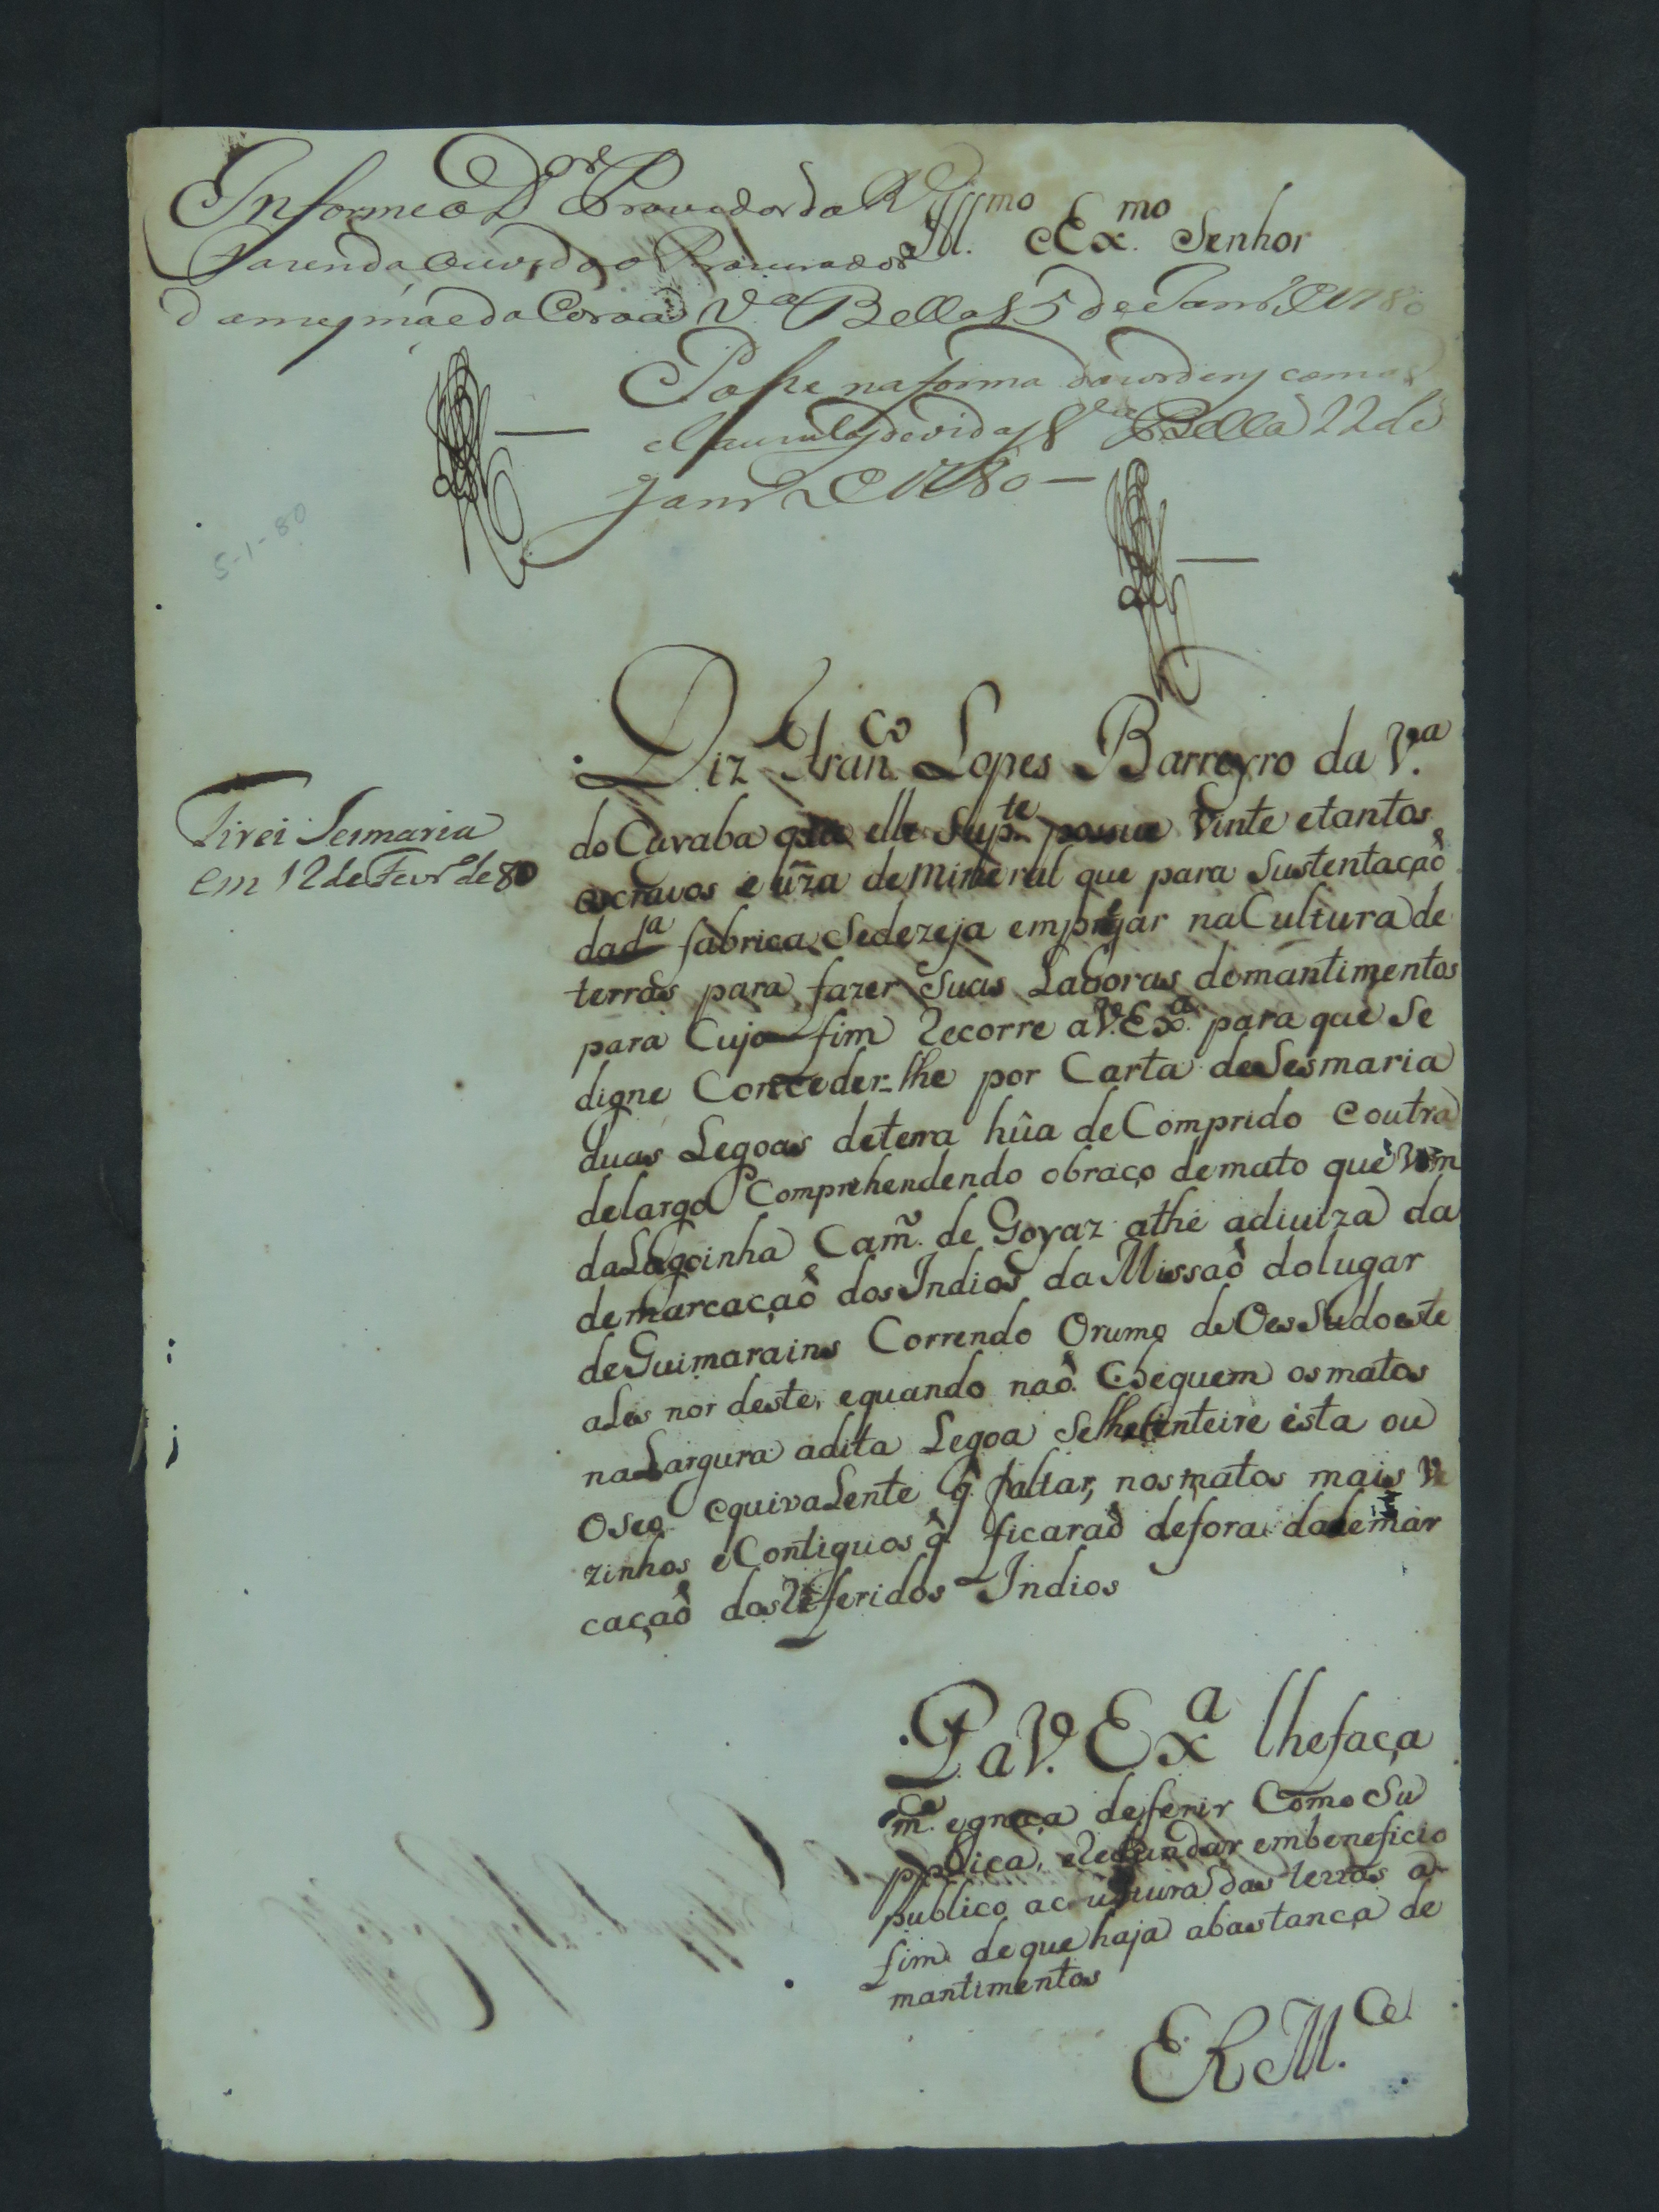 Informe o D.or Provedor da R.
Fazenda ouvido o Procurador
da mesma e da Coroa V.a Bella 15 de Janr.o de 1780
Ill.mo e Ex.mo Senhor
Passe na forma das ordens com as
clauzulas devidas V.a Bella 22 de
Janr.o de 1780
5-1-80
Tirei Sesmaria
em 12 de Fevr.o de 80
Diz Fran.co Lopes Barreyro da V.a
do Cuyaba que elle Sup.te possue vinte e tantos
escravos e uza de mineral que para Sustentaçaõ
da d.a fabrica Se dezeja empregar na Cultura de
terras para fazer Suas Laboras de mantimentos
para Cujo fim Recorre a V. Ex.a para que Se
digne Conceder-lhe por Carta de Sesmaria
duas Legoas de terra hũa de Comprido e outra
de largo Comprehendendo o braço de mato que vem
da Lagoinha Cam.o de Goyaz athe a diviza da
demarcaçaõ dos Indios da Missaõ do lugar
de Guimarains Correndo O rumo de Oes Sudoeste
a Les nordeste, e quando naõ Cheguem os matos
na Largura a dita Legoa Se lhe enteire esta ou
O Seo equivalente q̃ faltar, nos matos mais vi
zinhos e Contiguos q̃ ficaraõ de fora da demar
caçaõ dos Referidos Indios
P. a V. Ex.a lhe faça
m.ce e graça deferir Como Su
pplica, e Redundar em beneficio
publico a cultura das terras a
fim de que haja abastança de
mantimentos
E R M.ce